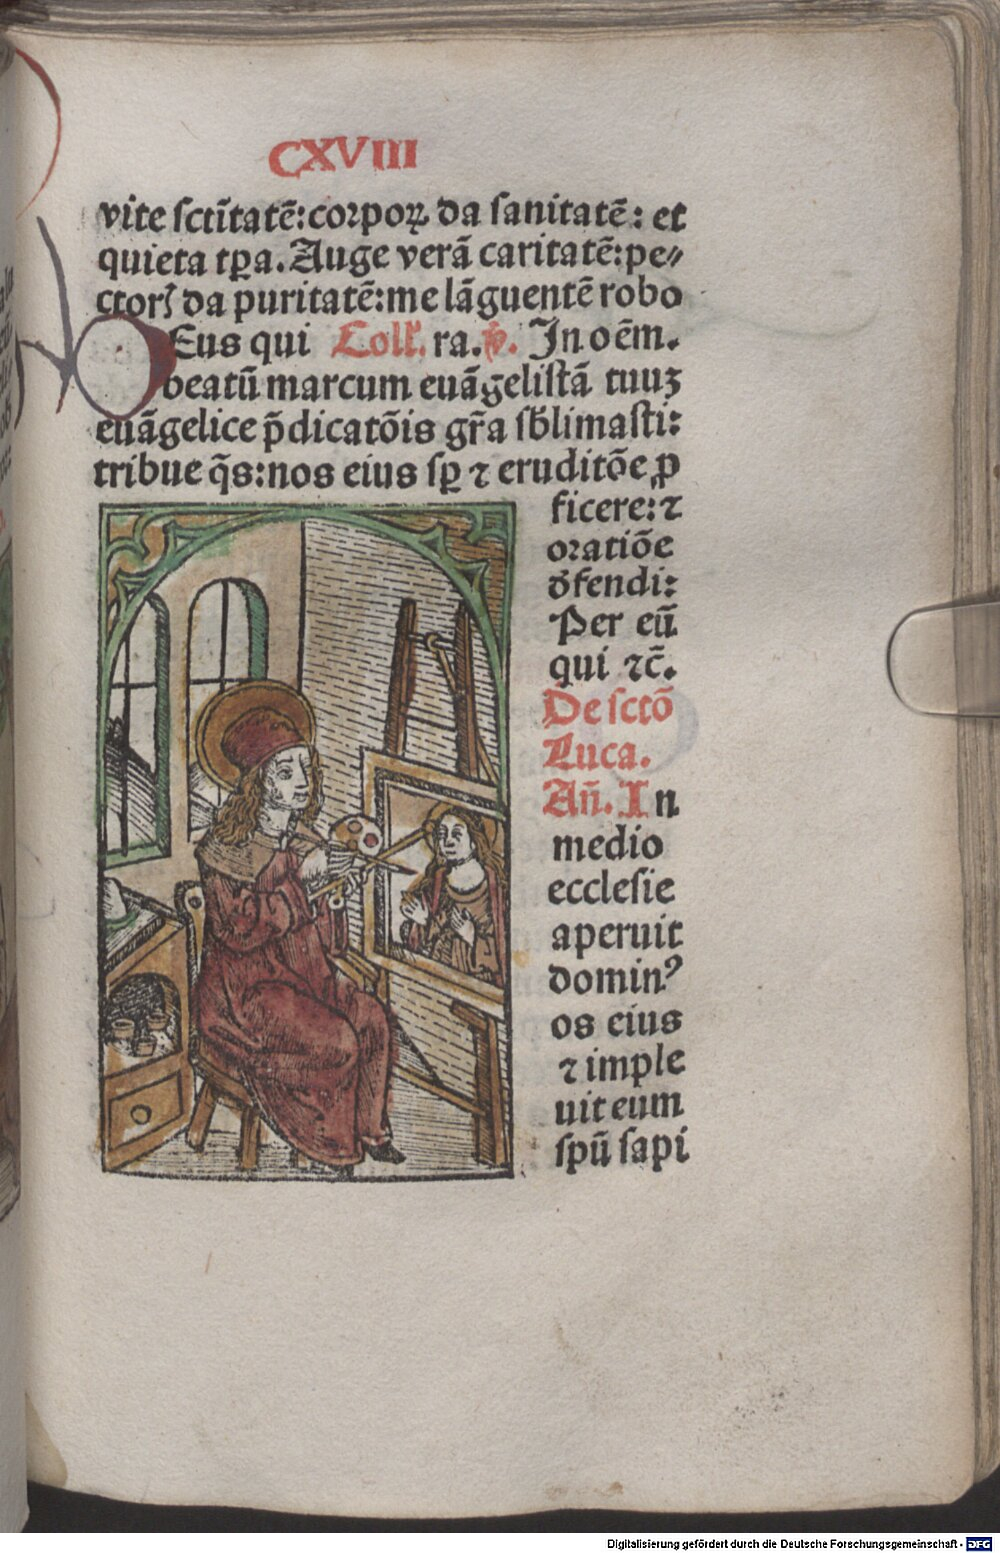 CXVIII
vite sctītatē: corporꝝ da sanitatē: et
quieta tꝑa. Auge verā caritatē: pe⸗
ctorꝭ da puritatē: me lāguentē robo
DEus qui Coll'. ra. ꝟ. In oēm.
beatū marcum euāgelistā tuuꝫ
euāgelice p̄dicatōis gr̄a sb̄limasti:
tribue q̄s: nos eius sꝑ ⁊ eruditōe ꝓ
ficere: ⁊
oratiōe
d̄fendi:
Per eū
qui ⁊c̄.
De sctō
Luca.
Añ. In
medio
ecclesie
aperuit
dominꝰ
os eius
⁊ imple
uit eum
spū sapi
Digitalisierung gefördert durch die Deutsche Forschungsgemeinschaft - DFG